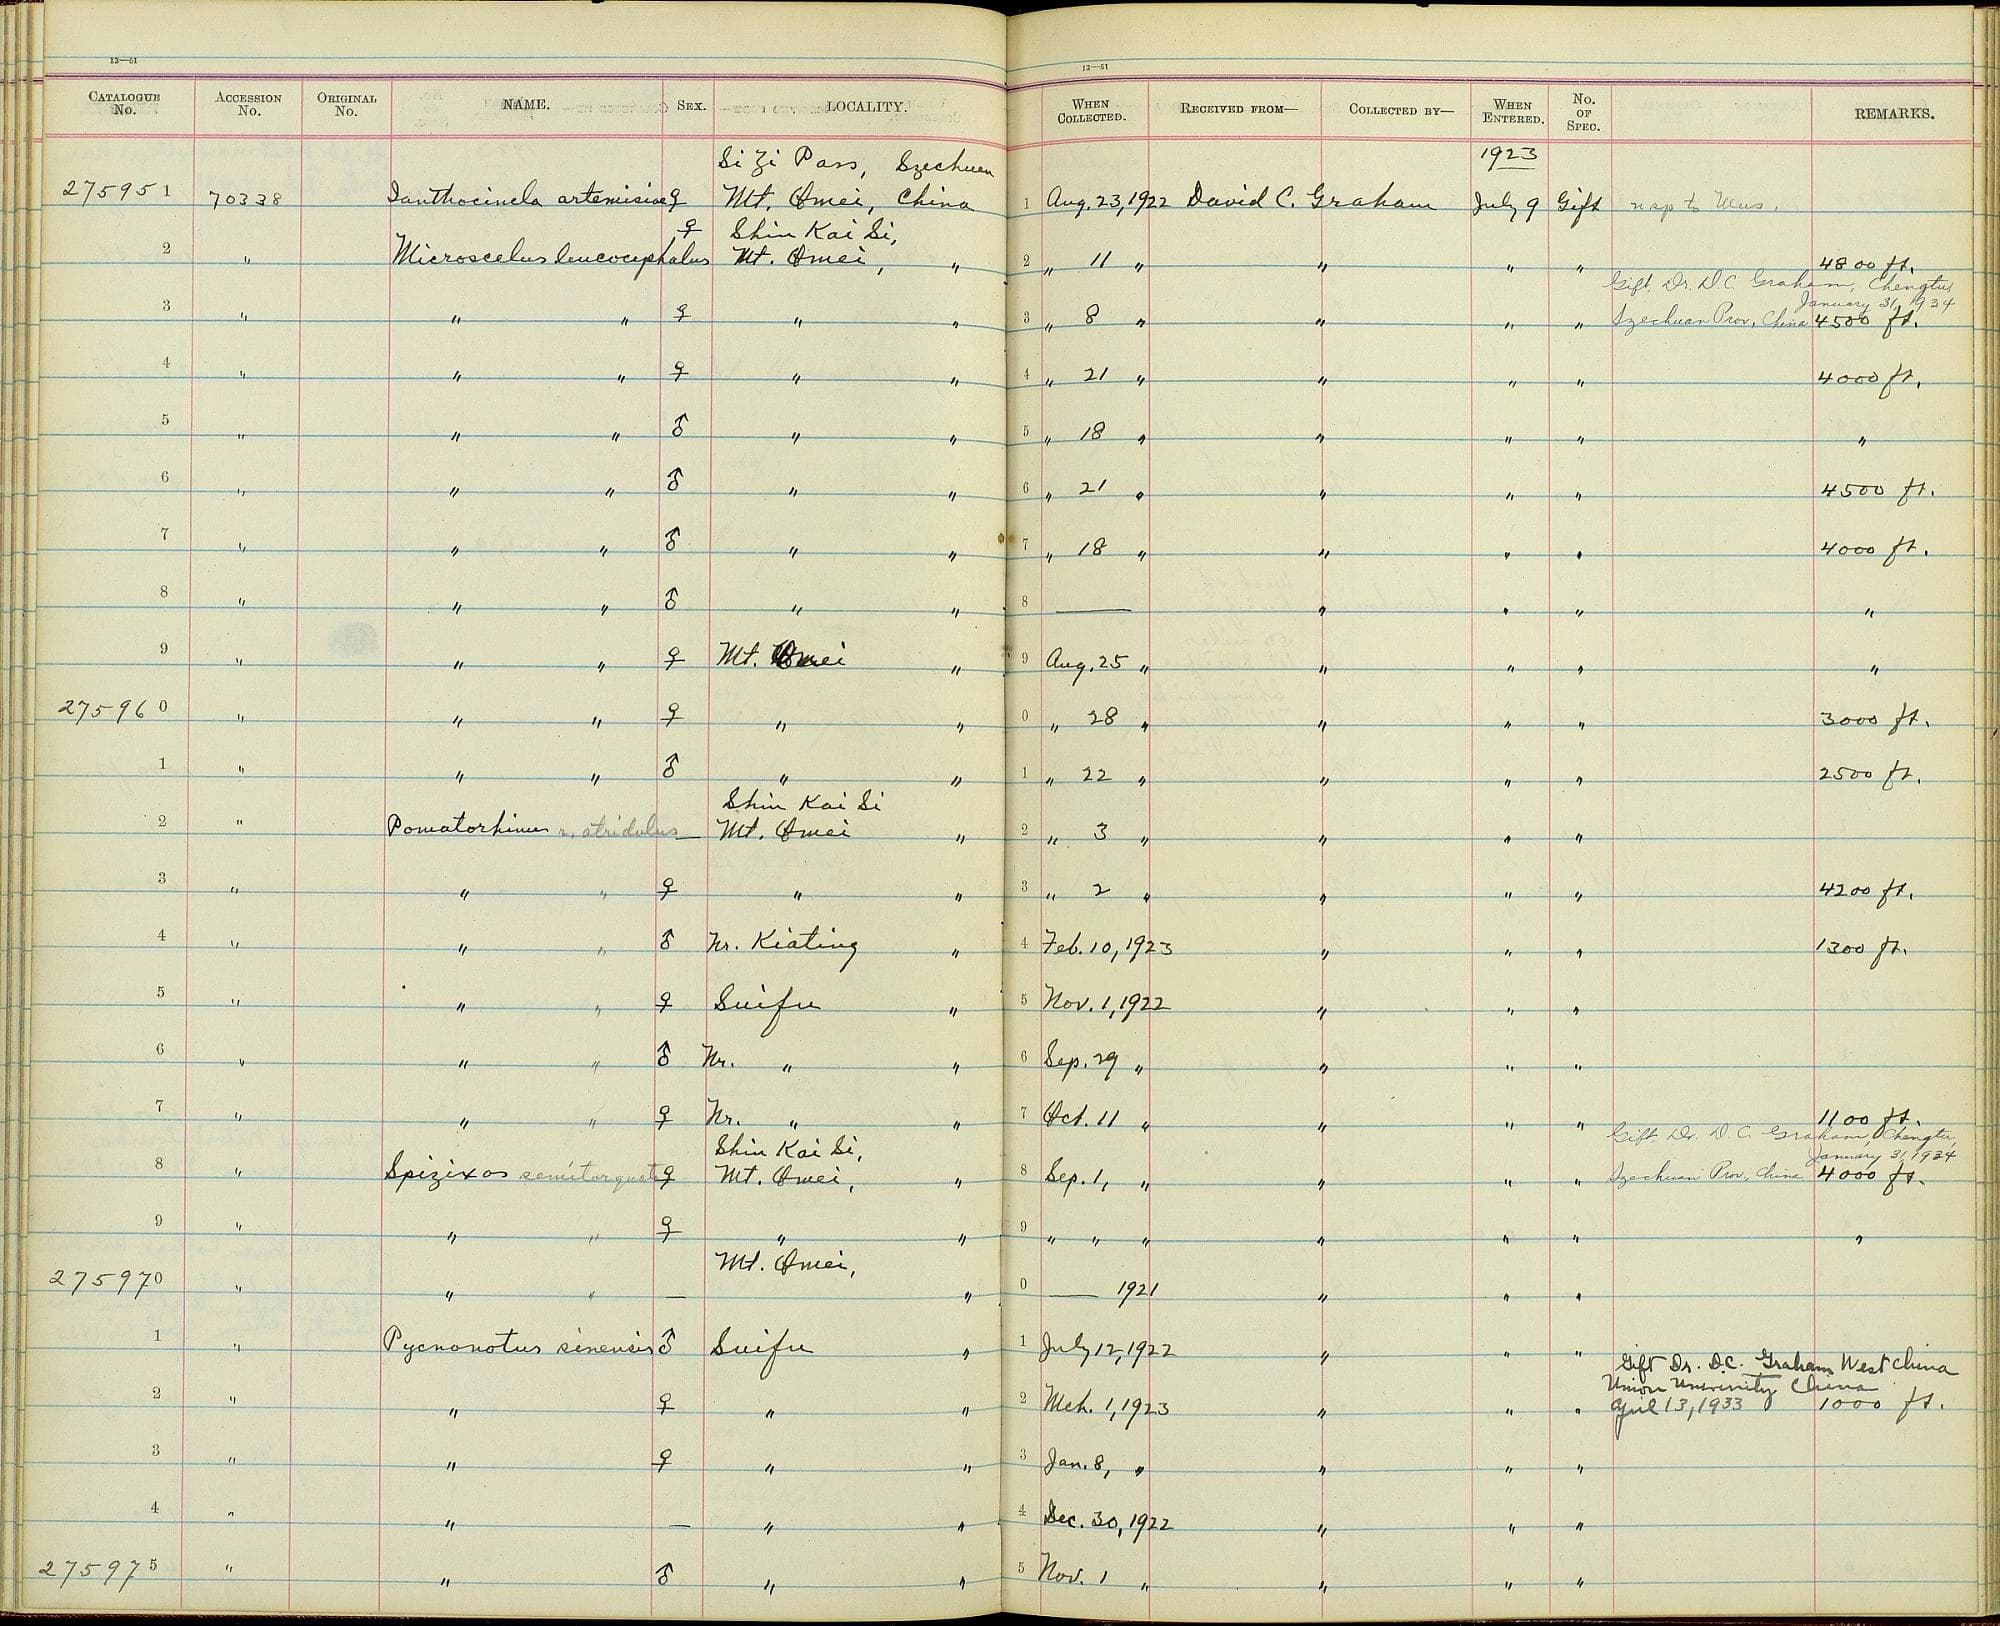 13—51
13—51
CATALOGUE No. ACCESSION No. ORIGINAL No. NAME. SEX. LOCALITY. WHEN COLLECTED. RECEIVED FROM— COLLECTED BY— WHEN ENTERED. No. OF SPEC. REMARKS.
Si Zi Pass, Szechuen 1923
275951 70338 Ianthocincla artemisiae ♀ Mt. Omei, China 1 Aug. 23, 1922 David C. Graham July 9 Gift
♀ Shin Kai Si,
2 " Microscelus leucocephalus Mt. Omei, " 2 " 11 " " " " 4800 ft.
Gift. Dr. D.C. Graham, Chengtu,
January 31, 1934
3 " " " ♀ " " 3 " 8 " " " " Szechuan Prov., China 4500 ft.
4 " " " ♀ " " 4 " 21 " " " " 4000 ft.
5 " " " ♂ " " 5 " 18 " " " " "
6 " " " ♂ " " 6 " 21 " " " " 4500 ft.
7 " " " ♂ " " 7 " 18 " " " " 4000 ft.
8 " " " ♂ " " 8 — " " " "
9 " " " ♀ Mt. Omei " 9 Aug. 25 " " " " "
275960 " " " ♀ " " 0 " 28 " " " " 3000 ft.
1 " " " ♂ " " 1 " 22 " " " " 2500 ft.
Shin Kai Si
2 " Pomatorhinus r. stridulus — Mt. Omei " 2 " 3 " " " "
3 " " " ♀ " " 3 " 2 " " " " 4200 ft.
4 " " " ♂ Nr. Kiating " 4 Feb. 10, 1923 " " " 1300 ft.
5 " " " ♀ Suifu " 5 Nov. 1, 1922 " " "
6 " " " ♂ Nr. " " 6 Sep. 29 " " " "
7 " " " ♀ Nr. " " 7 Oct. 11 " " " " 1100 ft.
Shin Kai Si, Gift Dr. D. C. Graham, Chengtu,
January 31, 1934
8 " Spizixos semitorquatus ♀ Mt. Omei, " 8 Sep. 1, " " " " Szechuan Prov., China 4000 ft.
9 " " " ♀ " " 9 " " " " " " "
Mt. Omei,
275970 " " " — " 0 — 1921 " " "
1 " Pycnonotus sinensis ♂ Suifu " 1 July 12, 1922 " " "
Gift Dr. D.C. Graham West China
Union University China
2 " " ♀ " " 2 Mch. 1, 1923 " " " April 13, 1933 1000 ft.
3 " " ♀ " " 3 Jan. 8, " " " "
4 " " — " " 4 Dec. 30, 1922 " " "
275975 " " ♂ " " 5 Nov. 1 " " " "